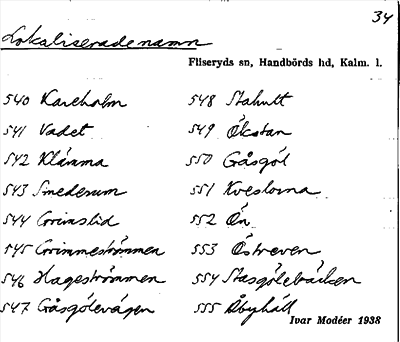 34
Lokaliserade namn
Fliseryds sn, Handbörds hd, Kalm. l.
540 Kareholm
541 Vadet
542 Klämma
543 Smederum
544 Grimslid
545 Grimmeströmmen
546 Hageströmmen
547 Gåsgölevägen
548 Stahult
549 Ökstan
550 Gåsgöl
551 Kveslorna
552 Ön
553 Östreven
554 Stasgölebäcken
555 Åbyhäll
Ivar Modéer 1938